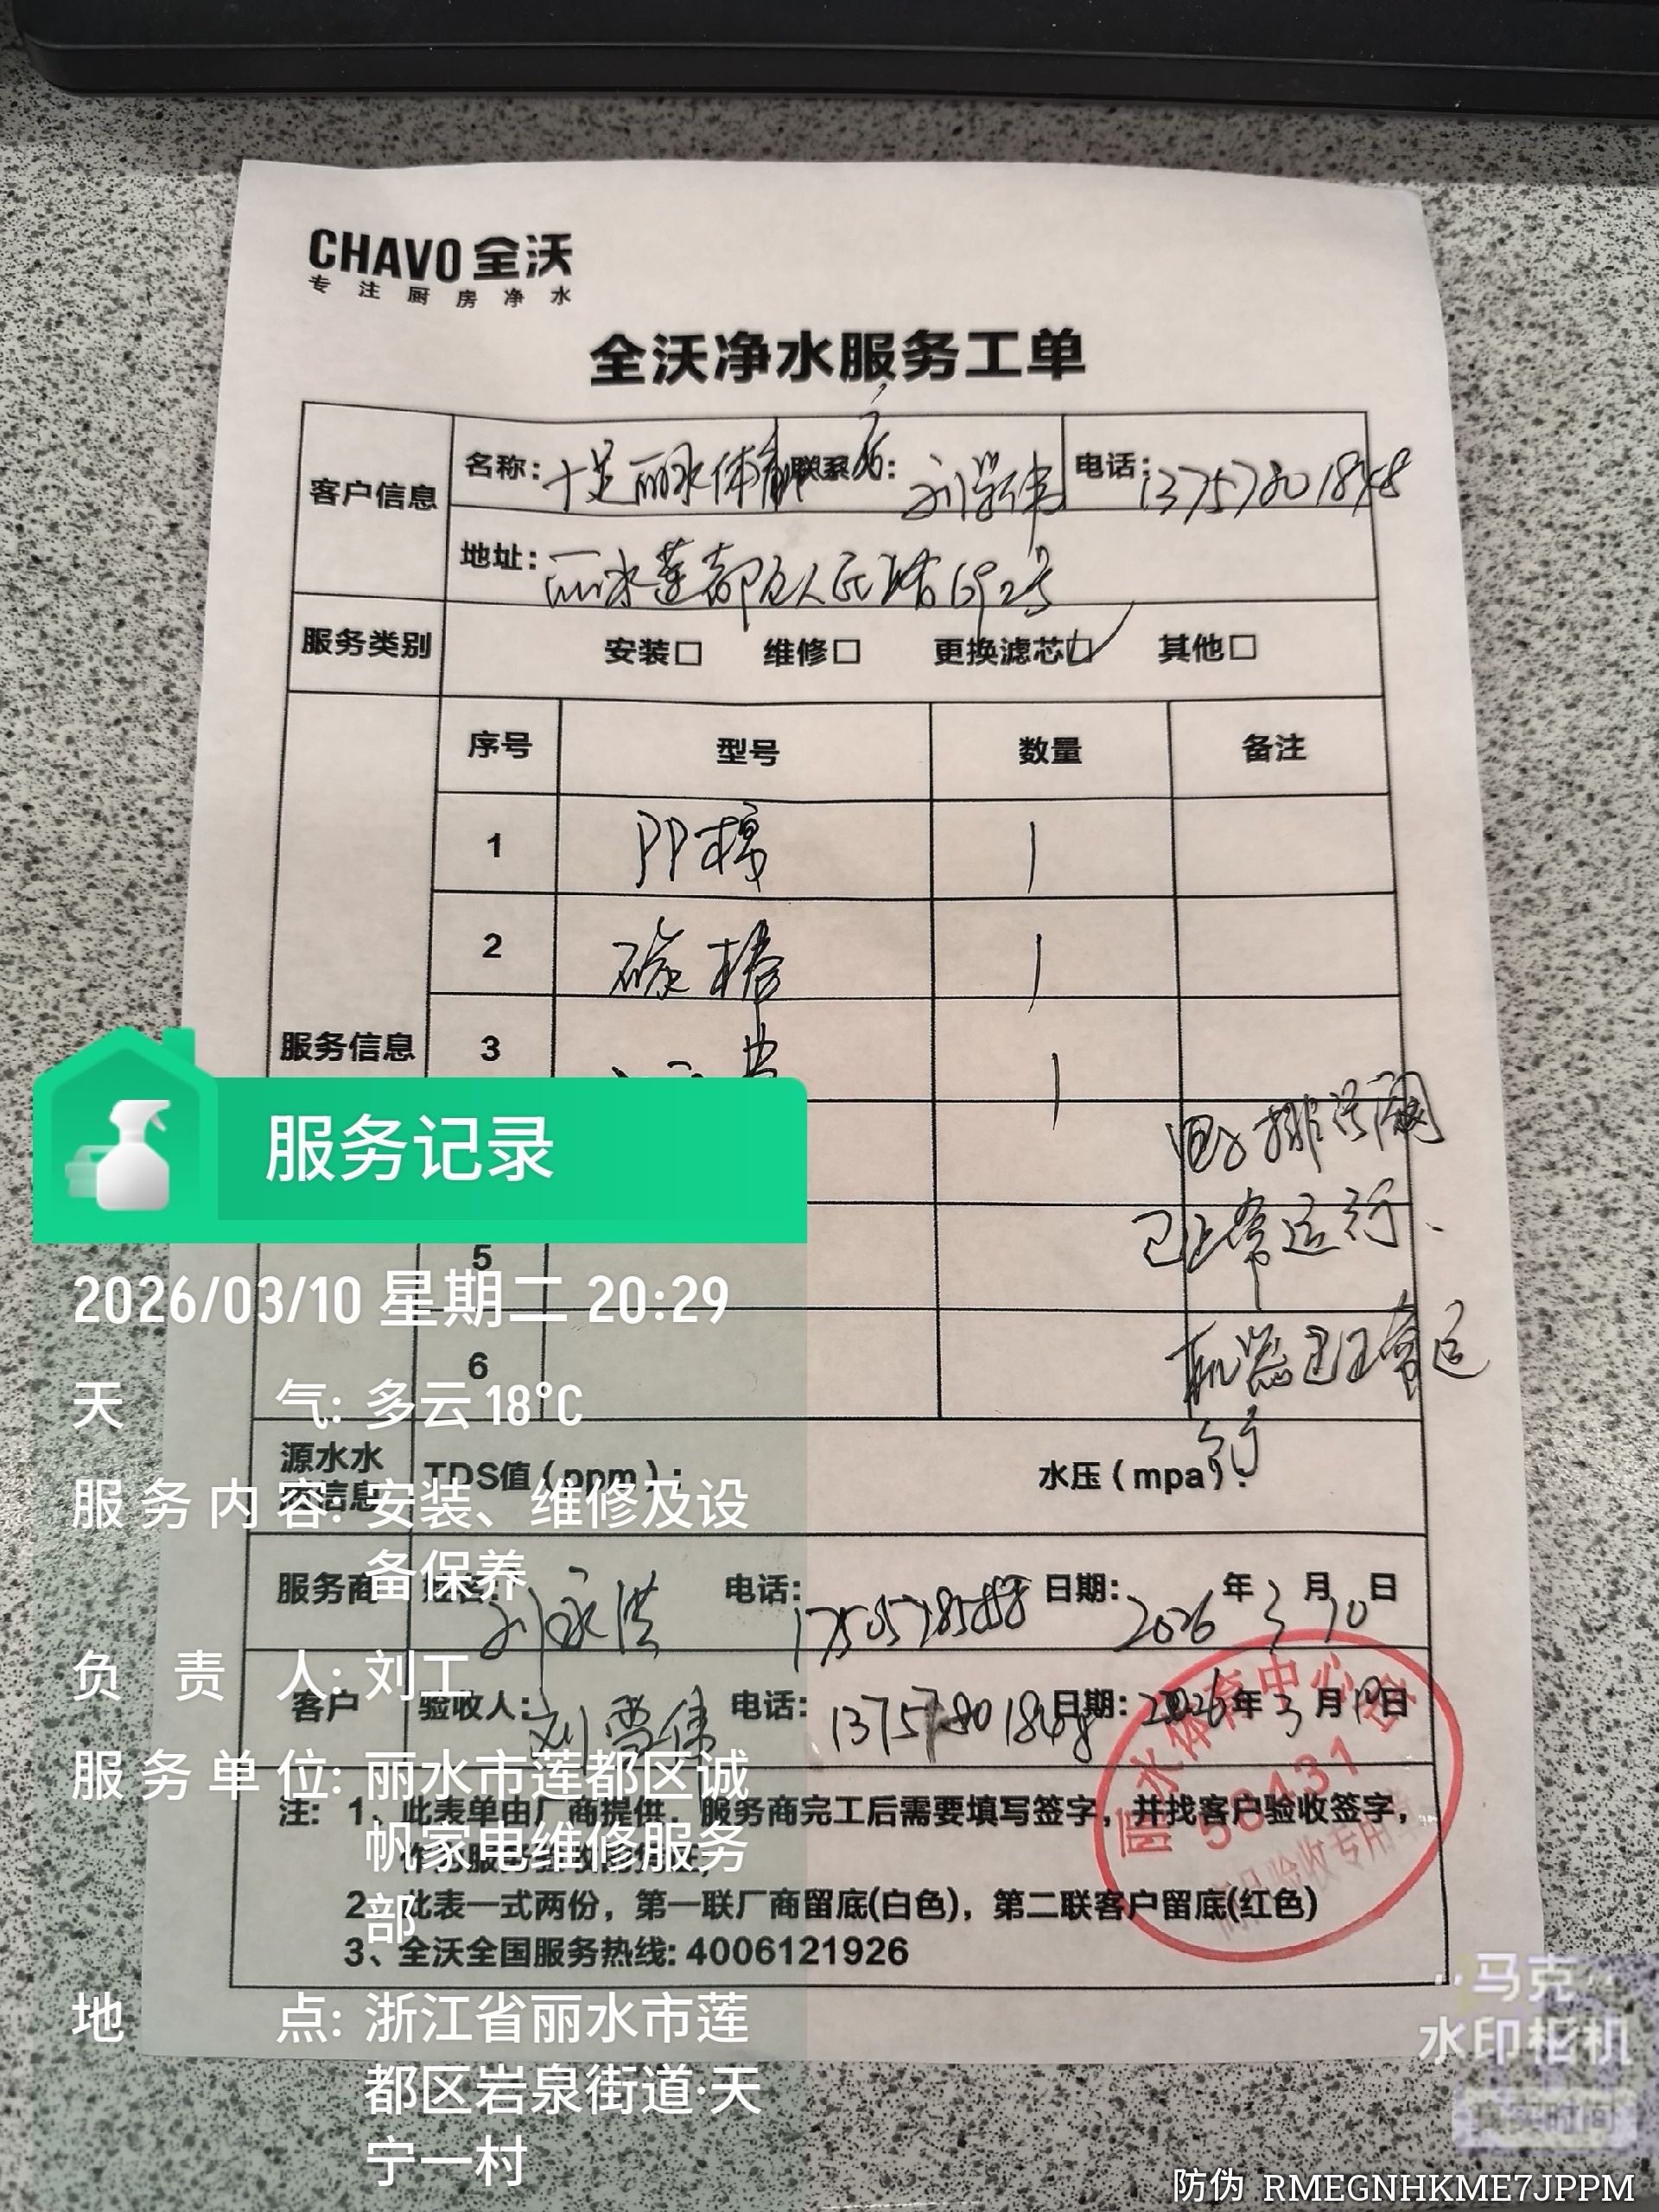 CHAVO 全沃
专注厨房净水
全沃净水服务工单
客户信息
名称: 十足丽水体育 联系
刘学伟
电话:
地址: 丽水莲都区人民路692号
服务类别 安装□ 维修□ 更换滤芯□ 其他□
序号 型号 数量 备注
1 PP棉 1
2 碳棒 1
服务信息 3 1
排污阀
已正常运行.
5
机器已正常运
行
6
源水水
信息 TDS值(ppm): 水压(mpa):
服务商 刘永洪 电话: 日期: 2026年3月10日
客户 验收人: 刘学伟 电话: 13757801848 日期: 2026年3月10日
注: 1、此表单由厂商提供,服务商完工后需要填写签字,并找客户验收签字,
2、此表一式两份,第一联厂商留底(白色),第二联客户留底(红色)
3、全沃全国服务热线: 4006121926
丽水体育中心
50431
商品验收专用章
服务记录
2026/03/10 星期二 20:29
天气: 多云 18°C
服务内容: 安装、维修及设
备保养
负责人: 刘工
服务单位: 丽水市莲都区诚
帆家电维修服务
部
地点: 浙江省丽水市莲
都区岩泉街道·天
宁一村
马克
水印相机
真实时间
防伪 RMEGNHKME7JPPM